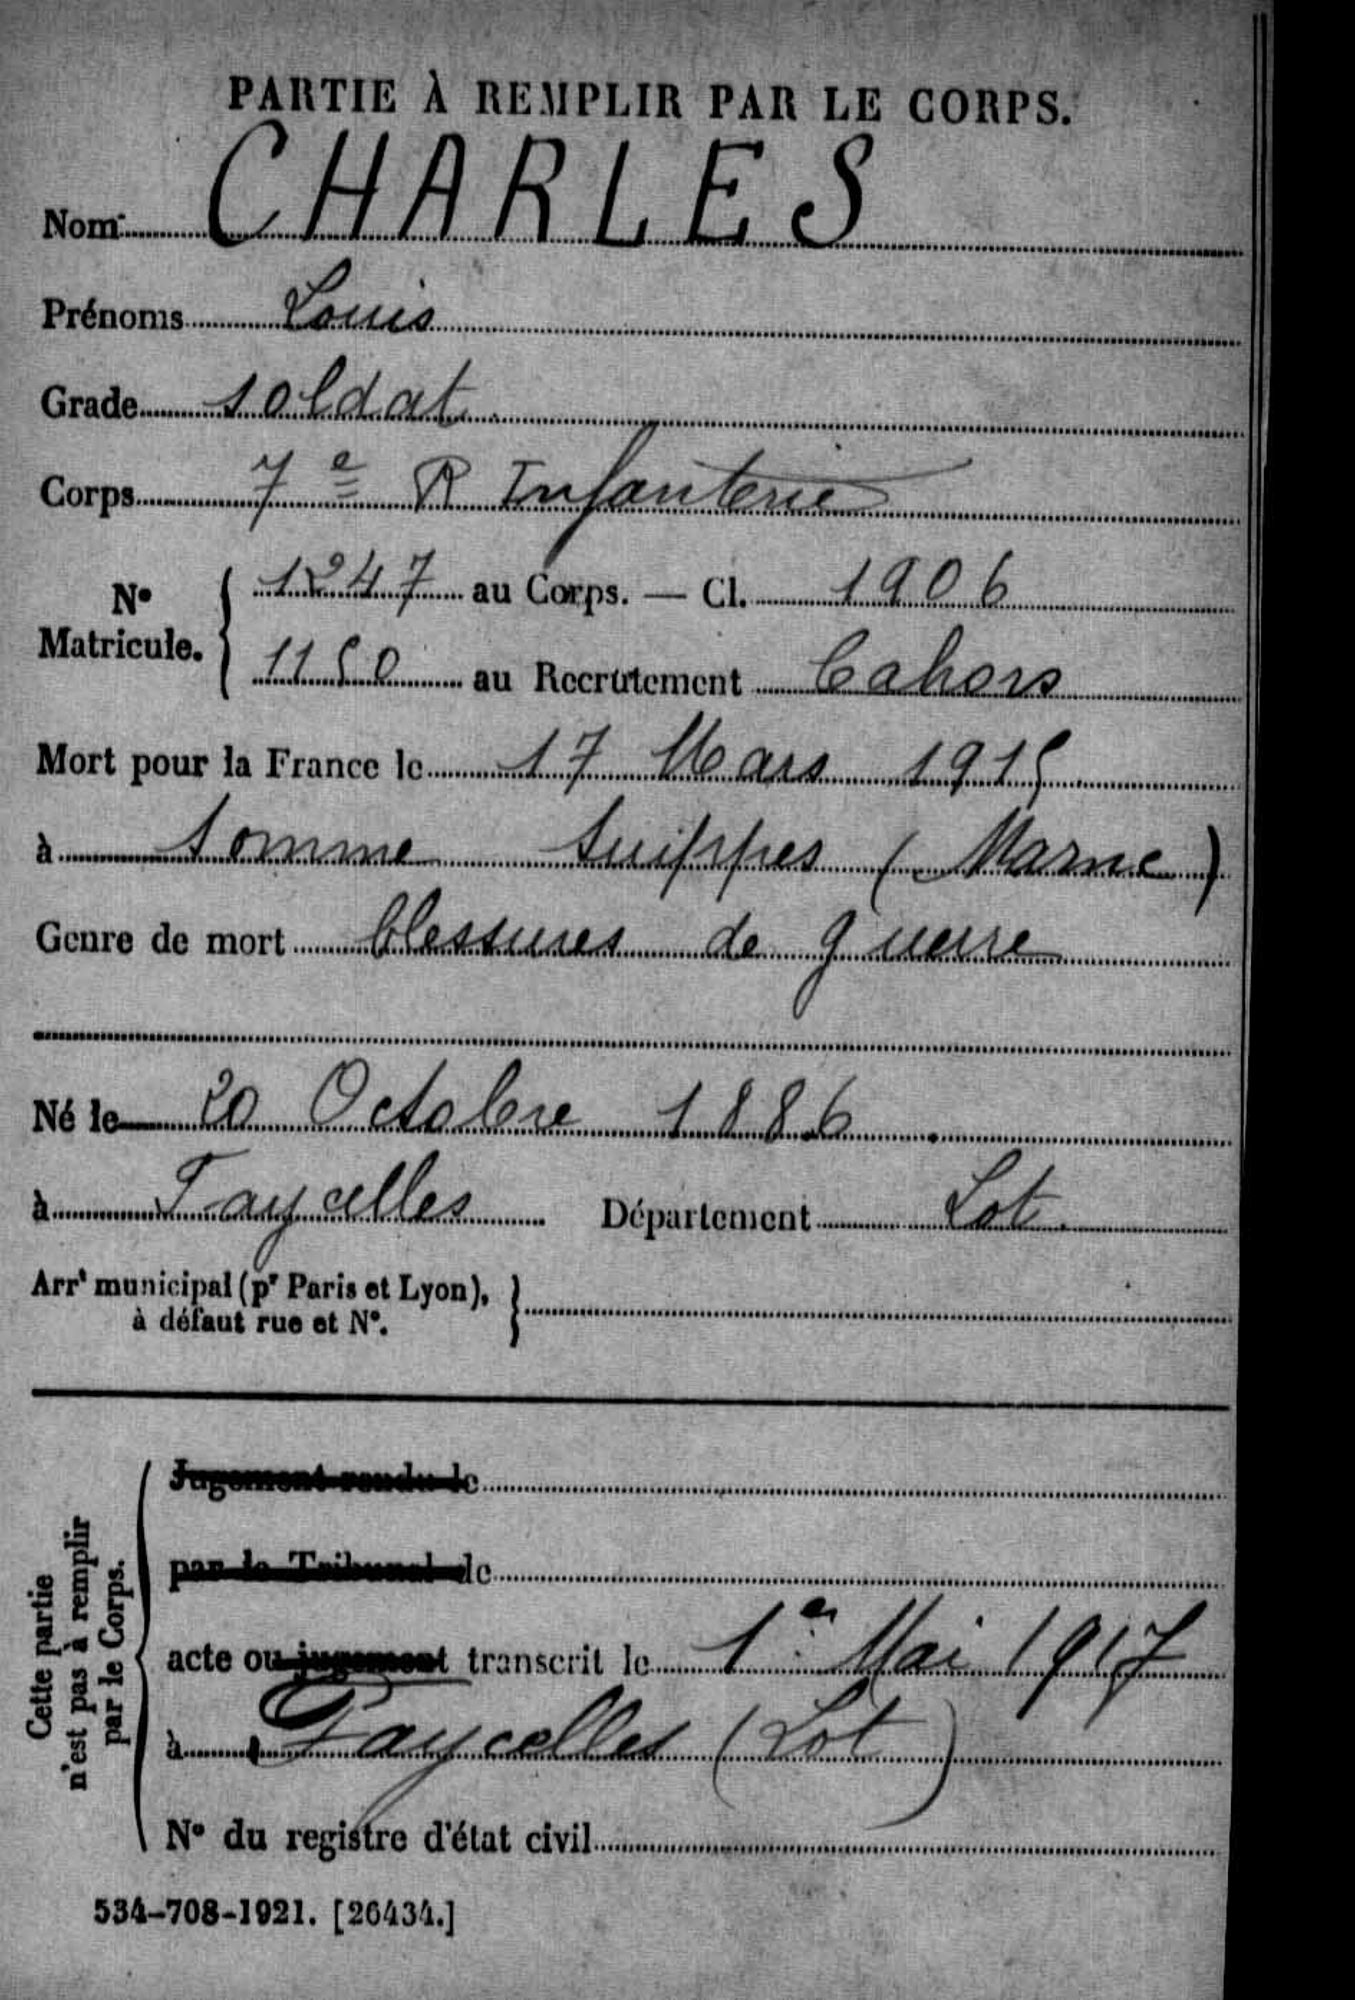 PARTIE À REMPLIR PAR LE CORPS.
Nom CHARLES
Prénoms Louis
Grade soldat
Corps 7e R Infanterie
N° Matricule. { 1247 au Corps. — Cl. 1906
1150 au Recrutement Cahors
Mort pour la France le 17 Mars 1915
à Somme Suippes (Marne)
Genre de mort blessures de guerre
Né le 20 Octobre 1886
à Faycelles Département Lot
Arrt municipal (pr Paris et Lyon),
à défaut rue et N°.
Cette partie
n'est pas à remplir
par le Corps.
Jugement rendu le
par le Tribunal de
acte ou jugement transcrit le 1er Mai 1917
à Faycelles (Lot)
N° du registre d'état civil
534-708-1921. [26434.]